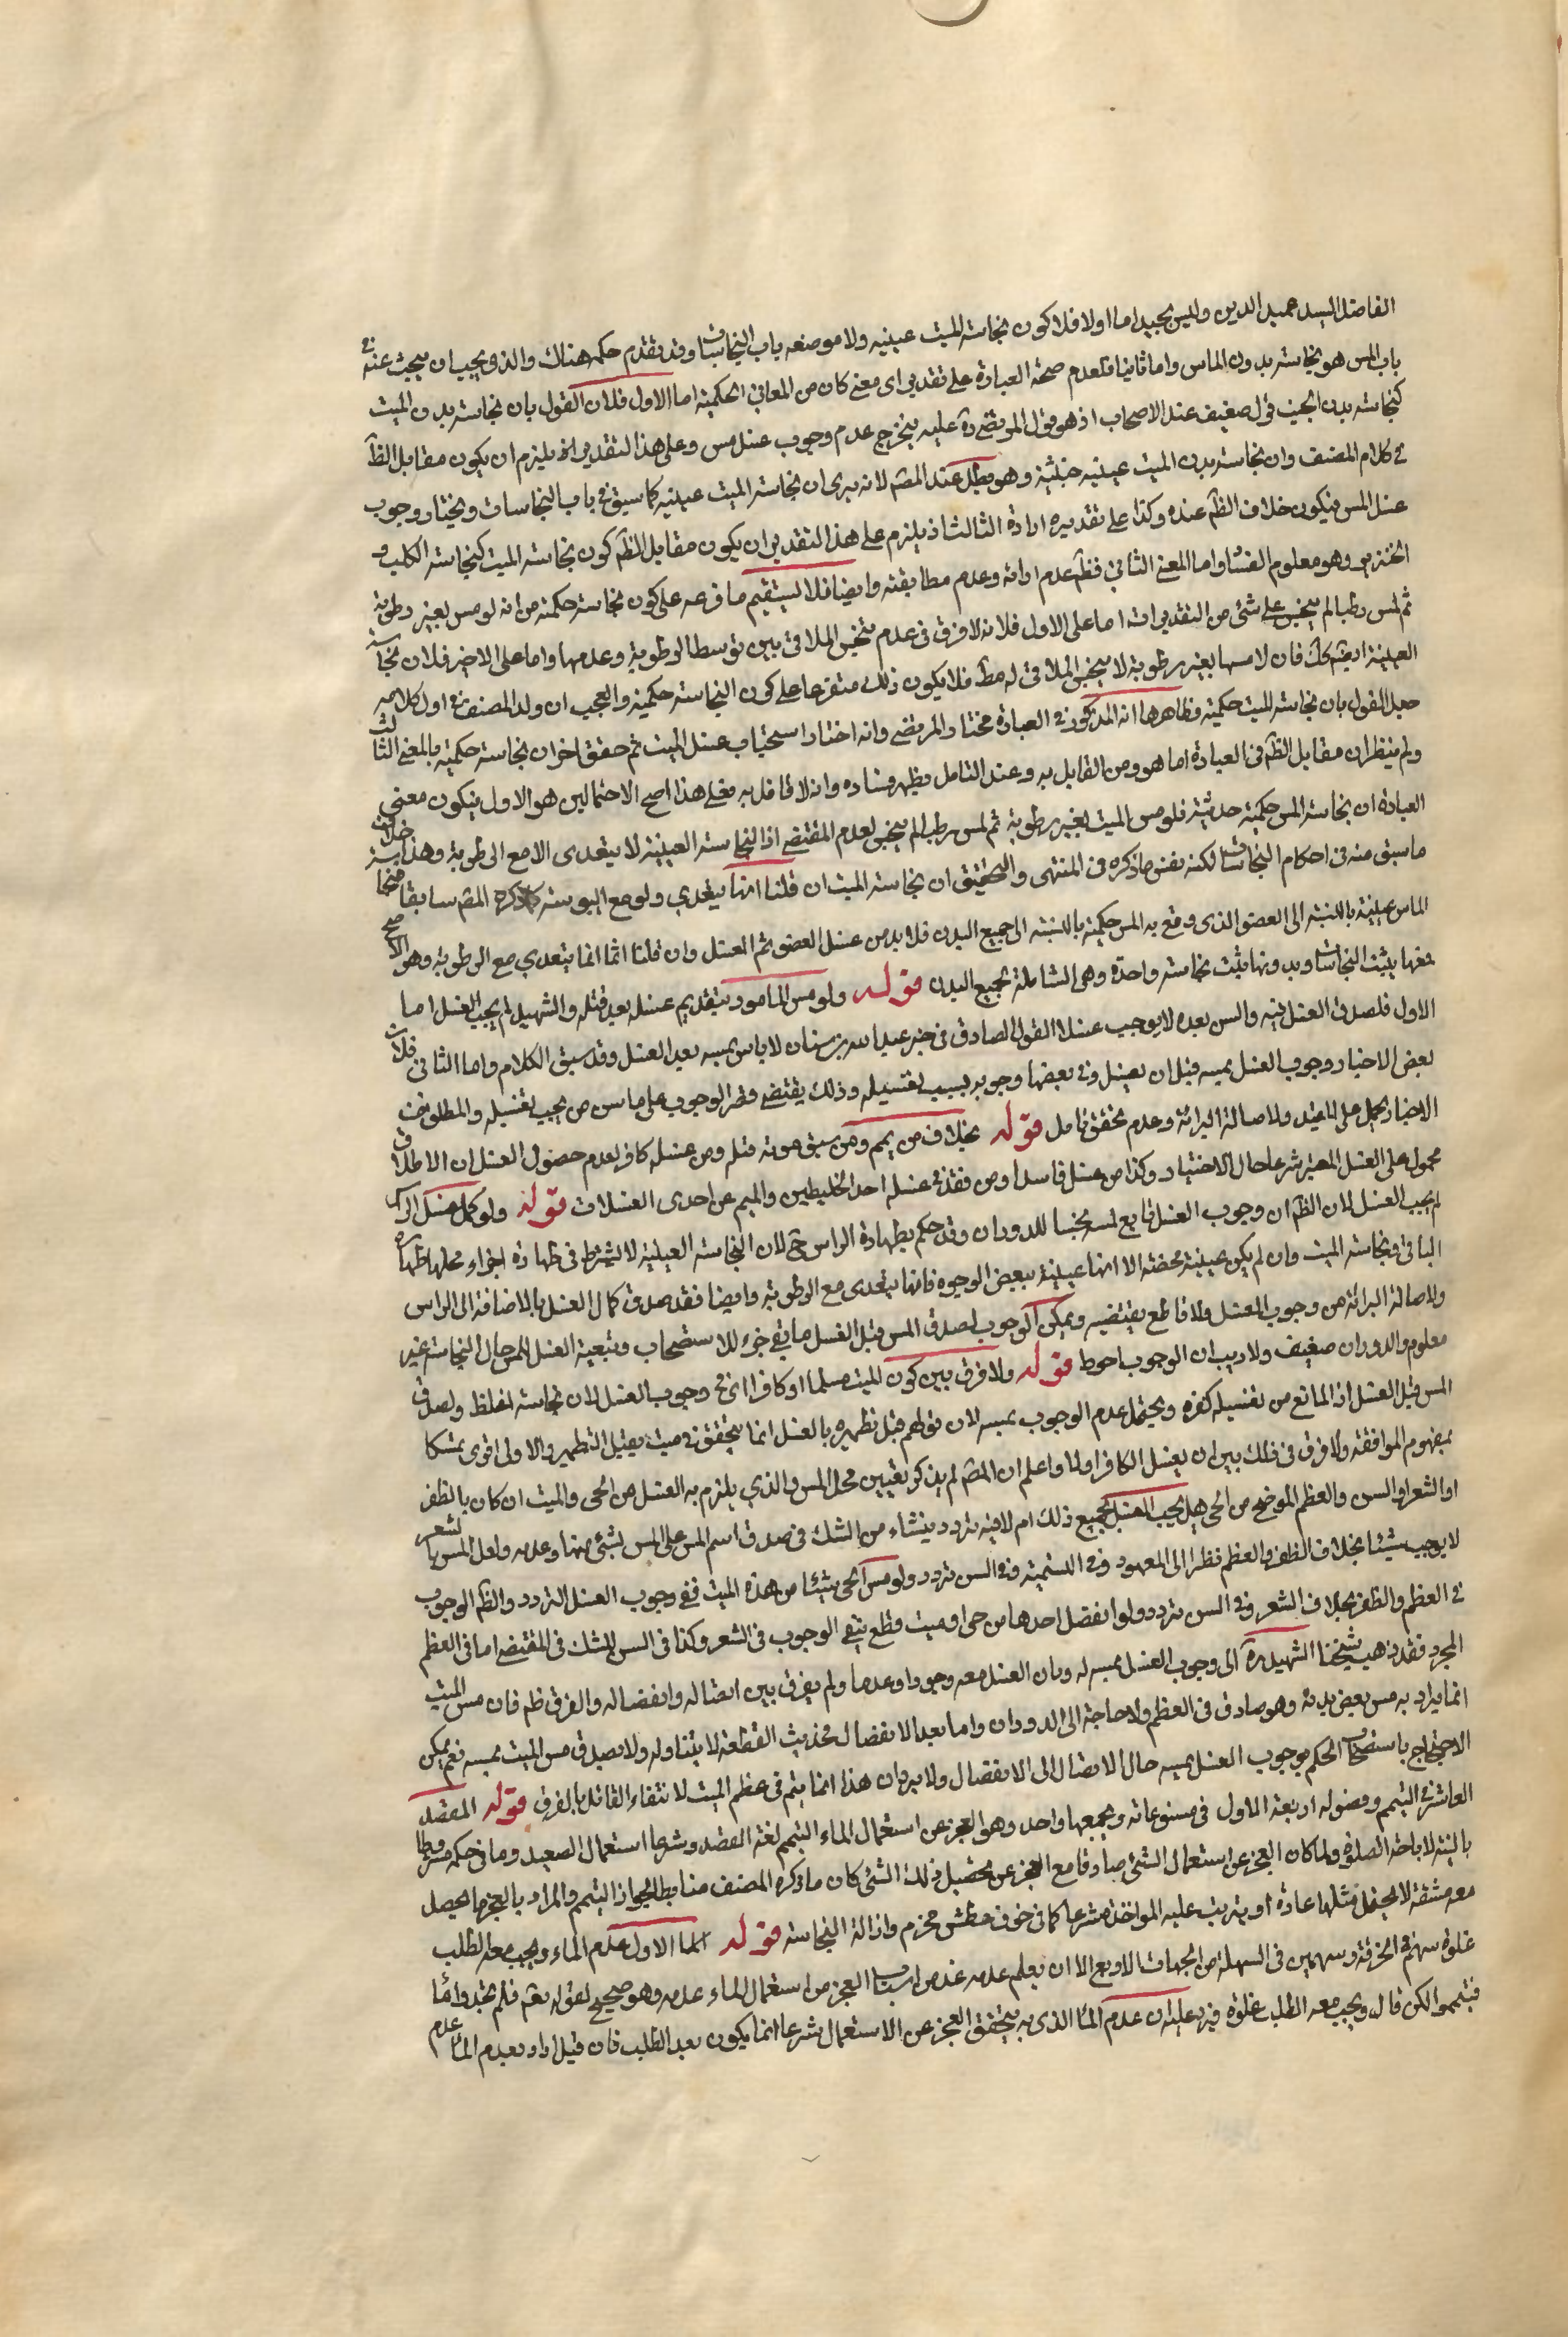 الفاضل السيد عميد الدين وليس بجيد اما اولا فلا كون نجاسة الميت عينيه ولا موضعه باب النجاسات وقد تقدم حكمه هناك والذي يجب ان يبحث عنه في
باب المس هو نجاسة بدون الماس واما ثانيا فلعدم صحة العبادة على تقدير اى معنى كان من المعاني الحكمية اما الاول فلان القول بان نجاسة بدن الميت
كنجاسة بدن الجنب قول ضعيف عند الاصحاب اذ هو قول المرتضى ره عليه يتخرج عدم وجوب غسل مس وعلى هذا التقدير انه يلزم ان يكون مقابل الظ
في كلام المصنف وان نجاسة بدن الميت عينيه خبثية وهو مبطل عند المصر لانه يرى ان نجاسة الميت عينيه كما سبق في باب النجاسات ويختار وجوب
غسل المس فيكون خلاف الظ عنده وكذا على تقديره ارادة الثالث اذ يلزم على هذا التقدير ان يكون مقابل الظ كون نجاسة الميت كنجاسة الكلب و
الخنزير وهو معلوم الفساد واما المعنى الثاني فظ عدم ارادته وعدم مطابقته وايضا فلا يستقيم ما فرعه على كون نجاسة حكمية من انه لو مس بغير رطوبة
ثم لمس رطبا لم ينجس على شئ من التقديرات اما على الاول فلانه لا فرق في عدم تنجس الملاقى بين توسط الرطوبة وعدمها واما على الاخير فلان نجاسة
العينية ايضا كك فان لامسها بغير رطوبة لا ينجس الملاقى له مط فلا يكون ذلك متفرعا على كون النجاسة حكمية والعجب ان ولد المصنف في اول كلامه
جعل القول بان نجاسة الميت حكمية فظاهرها انه المذكور في العبادة مختار المرتضى وانه اختار استحباب غسل الميت ثم حقق اخر ان نجاسة حكمية بالمعنى الثالث
ولم ينظر ان مقابل الظ في العبادة اما هو ومن القابل به وعند التامل يظهر فساده وانه لا قائل به فعلى هذا اصح الاحتمالين هو الاول فيكون معنى
العبادة ان نجاسة المس حكمية حدثية فلو مس الميت بغير رطوبة ثم لمس رطبا لم ينجس لعدم المقتضى اذ النجاسة العينية لا يتعدى الا مع الرطوبة وهذا خلاف
ما سبق منه في احكام النجاسات لكنه يفس ما ذكره في المنتهى والتحقيق ان نجاسة الميت ان قلنا انها يتعدي ولو مع اليبوسة كما ذكره المصر سابقا فنجاسة
الماس عينية بالنسبة الى العضو الذى وقع به المس حكمية بالنسبة الى جميع البدن فلا بد من غسل العضو ثم الغسل وان قلنا انها انما يتعدي مع الرطوبة وهو الاصح
فمعها يثبت النجاستان وبدونها يثبت نجاسة واحدة وهى الشاملة لجميع البدن قوله ولو مس المامور بتقديم غسله بعد قتله والشهيد لم يجب الغسل اما
الاول فلصدق الغسل فيه والمس بعده لا يوجب غسلا لقول الصادق في خبر عبدالله بن سنان لا باس بمسه بعد الغسل وقد سبق الكلام واما الثاني فلان
بعض الاخبار وجوب الغسل بمسه قبل ان يغسل وفي بعضها وجوبه بسبب تغسيله وذلك يقتضي قصر الوجوب على ماس من يجب تغسيله والمطلق من
الاخبار يحمل على المقيد ولاصالة البرائة وعدم تحقق تامل قوله بخلاف من يمم ومن سبق موته قتله ومن غسله كافر لعدم حصول الغسل ان الاطلاق
محمول على الغسل المعتبر شرعا حال الاختيار وكذا من غسل فاسدا ومن فقد في غسله احد الخليطين والميمم عن احدى الغسلات قوله ولو كمل غسل الراس
لم يجب الغسل لان الظ ان وجوب الغسل تابع لمسه نجسا للدوران وقد حكم بطهارة الراس ح لان النجاسة العينية لا يشترط في طهارة اجزاء محلها طهارة
الباقي ونجاسة الميت وان لم يكن عينية محضة الا انها عينية ببعض الوجوه فانها يتعدى مع الرطوبة وايضا فقد صدق كمال الغسل بالاضافة الى الراس
ولاصالة البرائة من وجوب الغسل ولا قاطع يقتضيه ويمكن الوجوب لصدق المس قبل الغسل ما بقي جزء للاستصحاب وتبعية الغسل للمس حال النجاسة غير
معلوم والدوران ضعيف ولا ريب ان الوجوب احوط قوله ولا فرق بين كون الميت مسلما او كافرا اى في وجوب الغسل لان نجاسته اغلظ ولصدق
المس قبل الغسل اذ المانع من تغسيله كفره ويحتمل عدم الوجوب بمسه لان قولهم قبل تطهيره بالغسل انما يتحقق في ميت يقبل التطهير والاولى اقوى تمسكا
بمفهوم الموافقة ولا فرق في ذلك بين ان يغسل الكافر اولا واعلم ان المصر لم يذكر تعيين محل المس والذي يلزم به الغسل من الحى والميت ان كان بالظفر
او الشعر او السن والعظم الموضح من الحى هل يجب الغسل بجميع ذلك ام لا فيه تردد ينشاء من الشك في صدق اسم المس على المس بشئ منها وعدمه ولعل المس بالشعر
لا يوجب شيئا بخلاف الظفر والعظم نظرا الى المعهود في التسمية وفي السن تردد ولو مس الحى شيئا من هذه الميت ففي وجوب الغسل التردد والظ الوجوب
في العظم والظفر بخلاف الشعر وفي السن تردد ولو انفصل احدها من حى او ميت قطع بنفي الوجوب في الشعر وكذا في السن للشك في المقتضى اما في العظم
المجرد فقد ذهب شيخنا الشهيد ره الى وجوب الغسل بمسه له وبان الغسل معه وجودا وعدما ولم يفرق بين اتصاله وانفصاله والفرق ظ فان مس الميت
انما يراد به مس بعض بدنه وهو صادق في العظم ولا حاجة الى الدوران واما بعد الانفصال فحديث القطعة لا يتناوله ولا يصدق مس الميت بمسه نعم يمكن
الاحتجاج باستصحاب الحكم بوجوب الغسل بمسه حال الاتصال الى الانفصال ولا يرد ان هذا انما يتم في عظم الميت لانتفاء القائل بالفرق قوله المقصد
العاشر في التيمم وفصوله اربعة الاول في مسوغاته ويجمعها واحد وهو العجز عن استعمال الماء التيمم لغة القصد وشرعا استعمال الصعيد وما في حكمه مشترطا
بالنية لاباحة الصلوة ولما كان العجز عن استعمال الشئ صادقا مع العجز عن تحصيل ذلك الشئ كان ما ذكره المصنف ضابطا لجواز التيمم والمراد بالعجز ما يحصل
معه مشقة لا يحتمل مثلها عادة او يترتب عليه المواخذة شرعا كما في خوف عطش محترم وازالة النجاسة قوله الاول عدم الماء ويجب معه الطلب
غلوة سهم في الحزنة وسهمين في السهلة من الجهات الاربع الا ان يعلم عدمه عد من اسباب العجز من استعمال الماء عدمه وهو صحيح لقوله تعم فلم تجدوا ماء
فتيمموا لكن قال ويجب معه الطلب غلوة فيه عليه ان عدم الماء الذى به يتحقق العجز عن الاستعمال شرعا انما يكون بعد الطلب فان قيل اراد بعدم الماء عدم